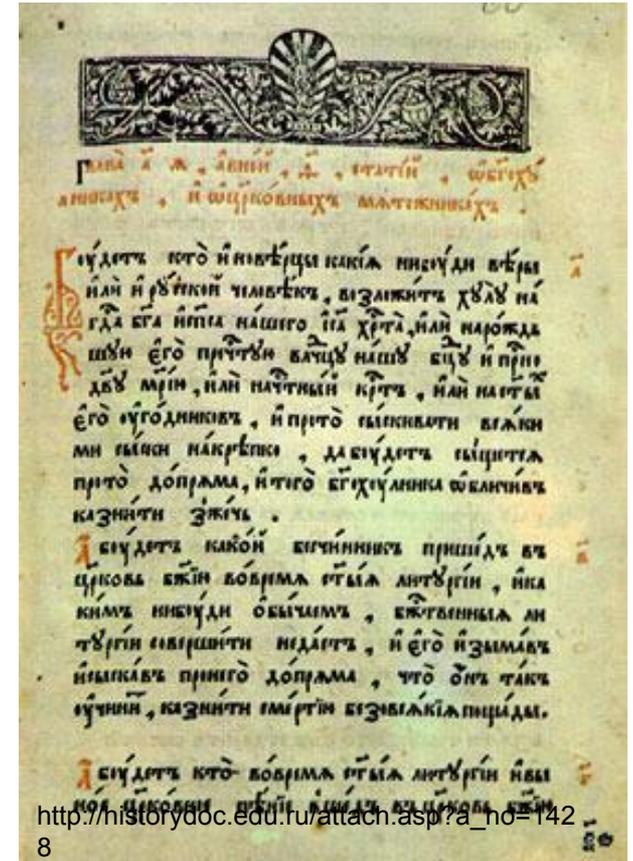 Глава̀ а҃ я , а в ней , ѳ҃ , статей , ѡ бг҃оху
лникахъ , и ѡ цр҃ковныхъ мятежникахъ .
Боу́детъ кто̀ и҆нове́рцы какі́я нибоу́ди ве́ры
и҆лѝ и҆ ру́ской человѣ́къ , возложи́тъ хулу̀ на
гд҃а бг҃а и҆ сп҃са нашего і҆с҃а хр҃та̀ , и҆лѝ на рожд
шую є҆го̀ преч҃тую влч҃цу нашу бц҃у и҆ прно
дв҃у мр҃ію , и҆лѝ на ч҃тный кр҃тъ , и҆лѝ на ст҃ы́хъ
є҆го̀ оу҆го́дниковъ , и҆ про то̀ сы́скивати вся́ки
ми сы́ски на́крѣпко , да боу́детъ сы́щется
про то̀ до́пряма , и҆ того̀ бг҃охоу́лника ѡ҆бличи́въ
казни́ти зже́чь .
А боу́детъ како́й безчи́нникъ прише́дъ въ
цр҃ковь бж҃ію во́ время ст҃ы́я литургі́и , и҆ ка
ки́мъ нибоу́ди о҆бы́чаемъ , бж҃твенныя ли
тургі́и соверши́ти не да́стъ , и҆ є҆го̀ и҆зыма́въ
и҆ сыска́въ про него̀ до́пряма , что̀ ѻ҆́нъ та́къ
оу҆чини́тъ , казни́ти сме́ртію безо вся́кія поща́ды .
А боу́детъ кто̀ во́ время ст҃ы́я литургі́и и҆ в ы
ное цр҃ко́вное пѣ́ніе вше́дъ въ цр҃ковь бж҃ію
http://historydoc.edu.ru/attach.asp?a_no=142
8